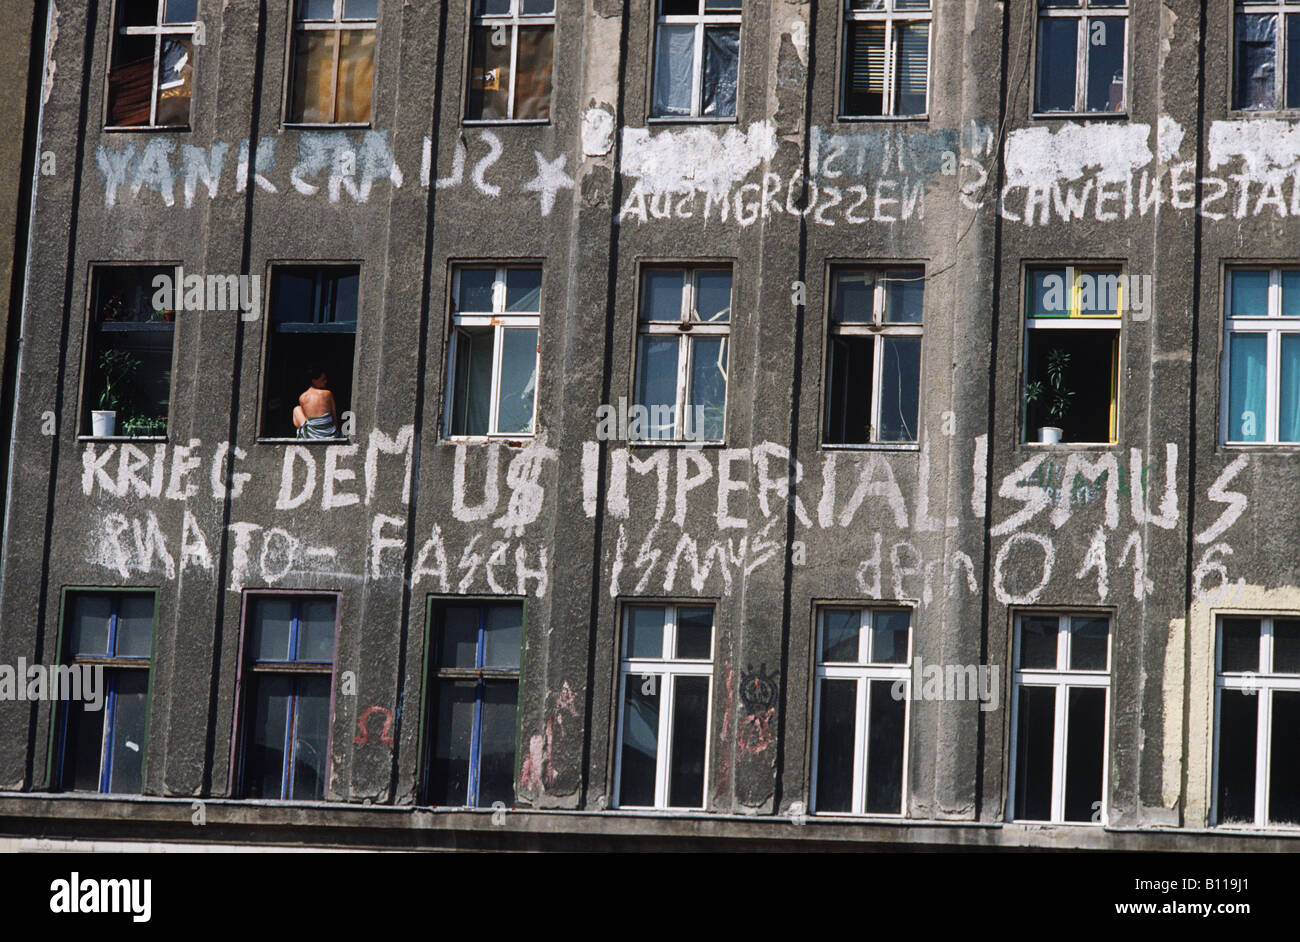 YANKS RAUS
AUSMGROSSEN SCHWEINESTAL
KRIEG DEM U$ IMPERIALISMUS
NATO-FASCHISMUS dem O 11 6,
a alamy stock photo
alamy
Image ID: B119J1
www.alamy.com